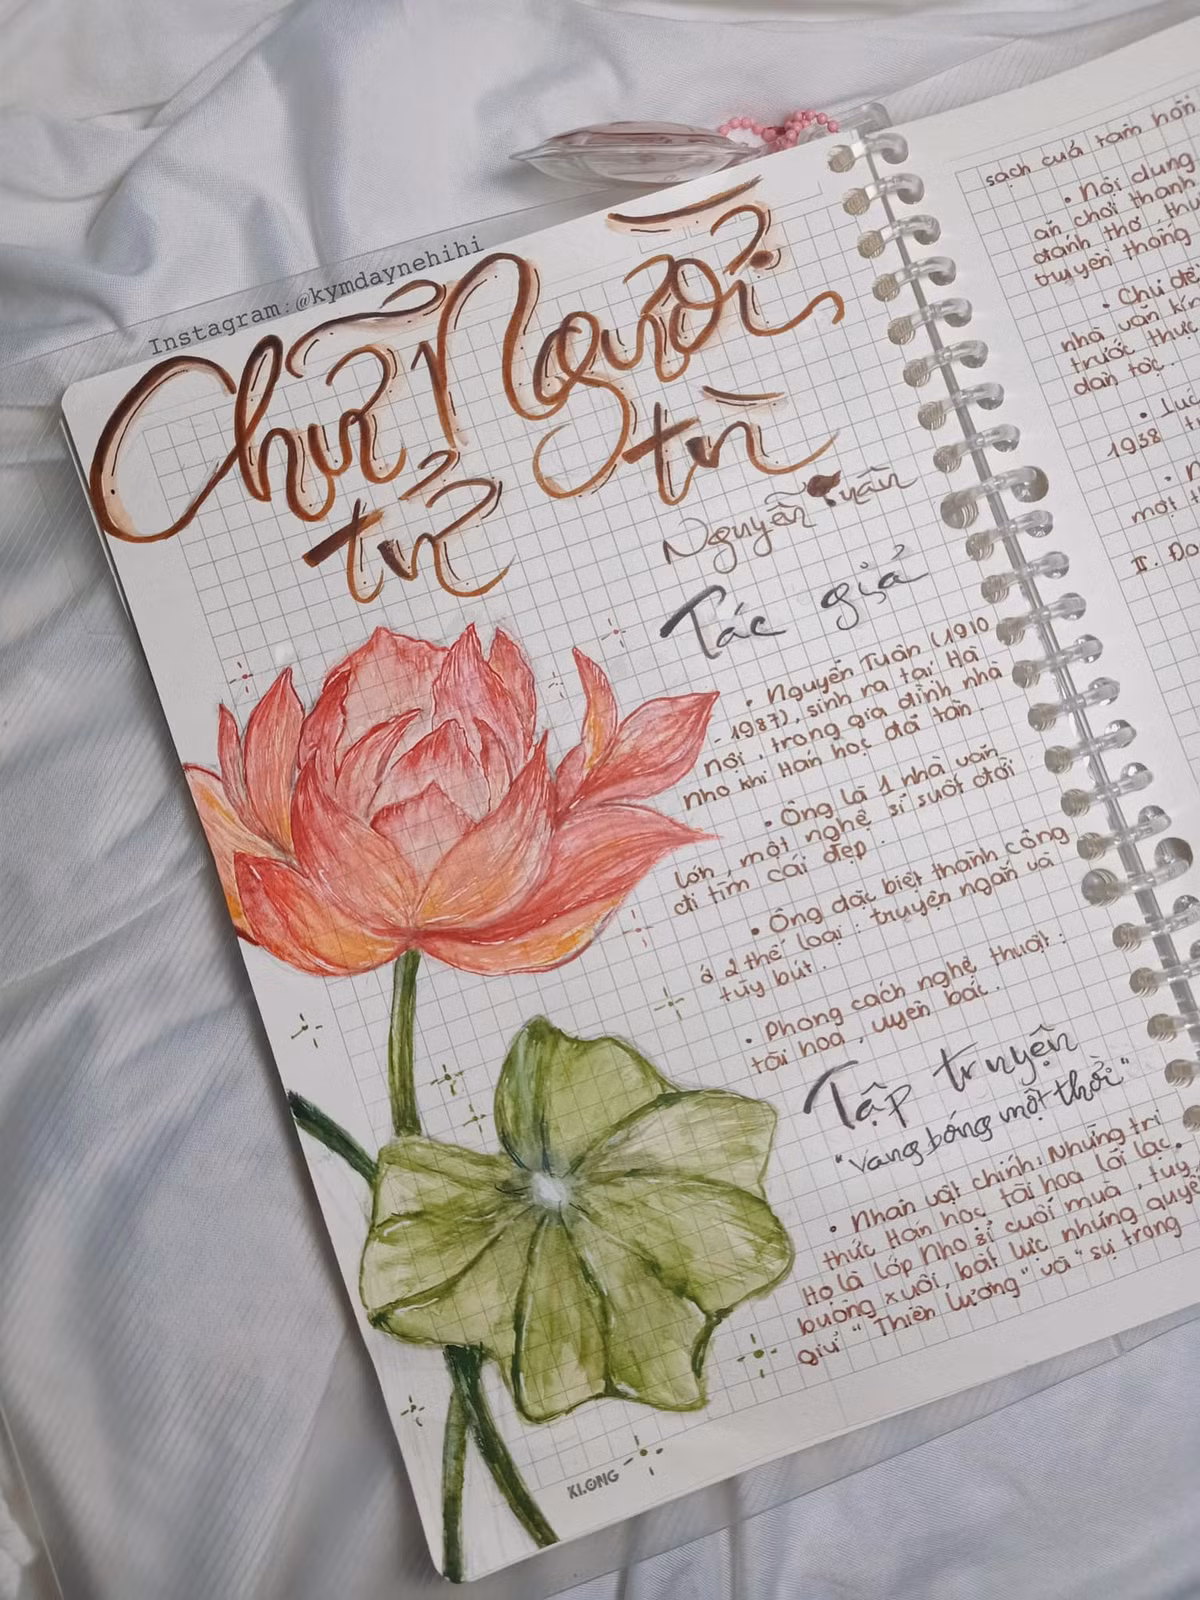 Instagram:@kymdaynehihi
Chữ Người
tử tù
Nguyễn Tuân
Tác giả
• Nguyễn Tuân (1910
- 1987), sinh ra tại Hà
Nội, trong gia đình nhà
nho khi Hán học đã tàn.
• Ông là 1 nhà văn
lớn, một nghệ sĩ suốt đời
đi tìm cái đẹp.
• Ông đặc biệt thành công
ở 2 thể loại: truyện ngắn và
tùy bút.
• Phong cách nghệ thuật:
tài hoa, uyên bác.
Tập truyện
"Vang bóng một thời"
• Nhân vật chính: Những trí
thức Hán học tài hoa lỗi lạc.
Họ là lớp Nho sĩ cuối mùa, tuy
buông xuôi, bất lực nhưng quyết
giữ "Thiên Lương" và "sự trong
KLONG
sạch của tâm hồn
• Nội dung
ăn chơi thanh
đánh thơ, thư
truyền thống
• Chủ đề
nhà văn kín
trước thực
dân tộc.
• Lúc
1938
một
II. Đo